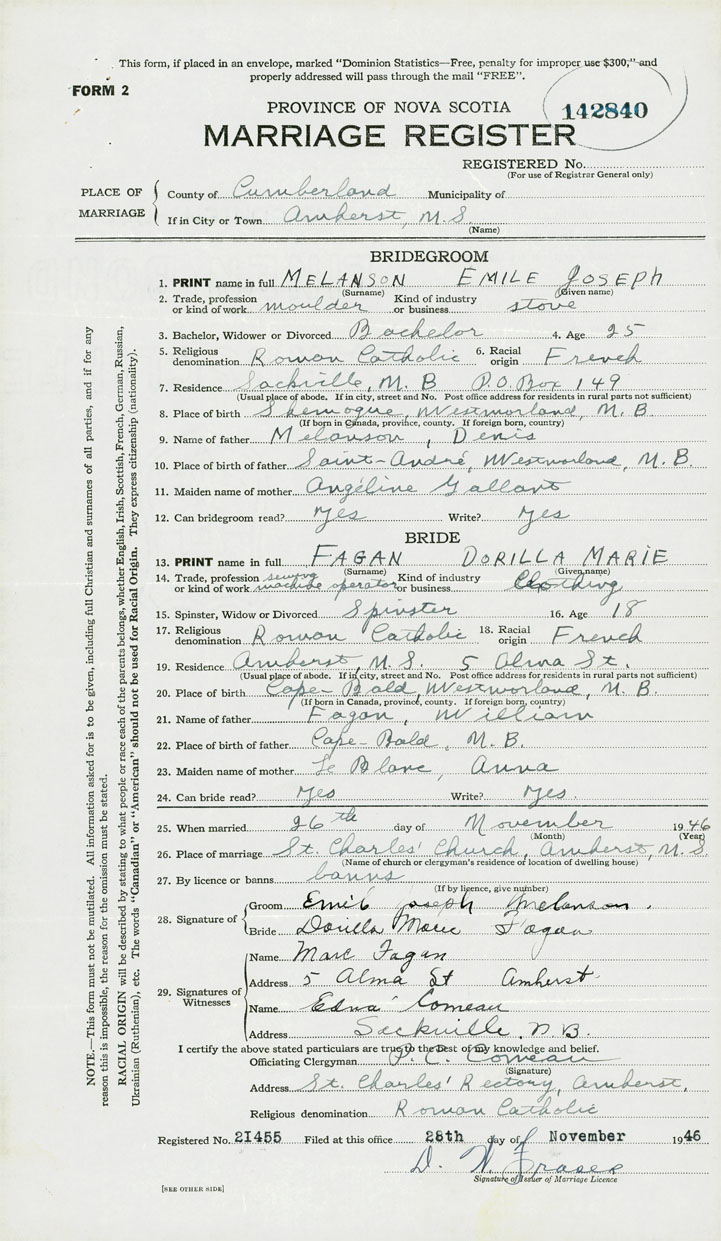 This form, if placed in an envelope, marked "Dominion Statistics—Free, penalty for improper use $300," and
properly addressed will pass through the mail "FREE".
FORM 2
PROVINCE OF NOVA SCOTIA
142840
MARRIAGE REGISTER
REGISTERED No.
(For use of Registrar General only)
PLACE OF MARRIAGE
County of Cumberland Municipality of
If in City or Town Amherst, N.S.
(Name)
BRIDEGROOM
1. PRINT name in full MELANSON EMILE JOSEPH
(Surname) (Given name)
2. Trade, profession or kind of work moulder Kind of industry or business stove
3. Bachelor, Widower or Divorced Bachelor 4. Age 25
5. Religious denomination Roman Catholic 6. Racial origin French
7. Residence Sackville, N. B P.O. Box 149
(Usual place of abode. If in city, street and No. Post office address for residents in rural parts not sufficient)
8. Place of birth Shemogue, Westmorland, N. B.
(If born in Canada, province, county. If foreign born, country)
9. Name of father Melanson, Denis
10. Place of birth of father Saint-André, Westmorland, N. B.
11. Maiden name of mother Angéline Gallant
12. Can bridegroom read? Yes Write? Yes
BRIDE
13. PRINT name in full FAGAN DORILLA MARIE
(Surname) (Given name)
14. Trade, profession or kind of work sewing machine operator Kind of industry or business Clothing
15. Spinster, Widow or Divorced Spinster 16. Age 18
17. Religious denomination Roman Catholic 18. Racial origin French
19. Residence Amherst, N.S. 5 Alma St.
(Usual place of abode. If in city, street and No. Post office address for residents in rural parts not sufficient)
20. Place of birth Cape-Bald, Westmorland, N. B.
(If born in Canada, province, county. If foreign born, country)
21. Name of father Fagan, William
22. Place of birth of father Cape-Bald, N.B.
23. Maiden name of mother Le Blanc, Anna
24. Can bride read? Yes Write? Yes.
25. When married 26th day of November 1946
(Month) (Year)
26. Place of marriage St. Charles' Church, Amherst, N.S.
(Name of church or clergyman's residence or location of dwelling house)
27. By licence or banns banns
(If by licence, give number)
28. Signature of
Groom Emile Joseph Melanson.
Bride Dorilla Marie Fagan
29. Signatures of Witnesses
Name Marc Fagan
Address 5 Alma St Amherst
Name Edna Comeau
Address Sackville, N.B.
I certify the above stated particulars are true to the best of my knowledge and belief.
Officiating Clergyman Comeau
(Signature)
Address St. Charles' Rectory, Amherst,
Religious denomination Roman Catholic
Registered No. 21455 Filed at this office 28th day of November 1946
D. W. Fraser
Signature of Issuer of Marriage Licence
[SEE OTHER SIDE]
NOTE.—This form must not be mutilated. All information asked for is to be given, including full Christian and surnames of all parties, and if for any
reason this is impossible, the reason for the omission must be stated.
RACIAL ORIGIN will be described by stating to what people or race each of the parents belongs, whether English, Irish, Scottish, French, German, Russian,
Ukrainian (Ruthenian), etc. The words "Canadian" or "American" should not be used for Racial Origin. They express citizenship (nationality).